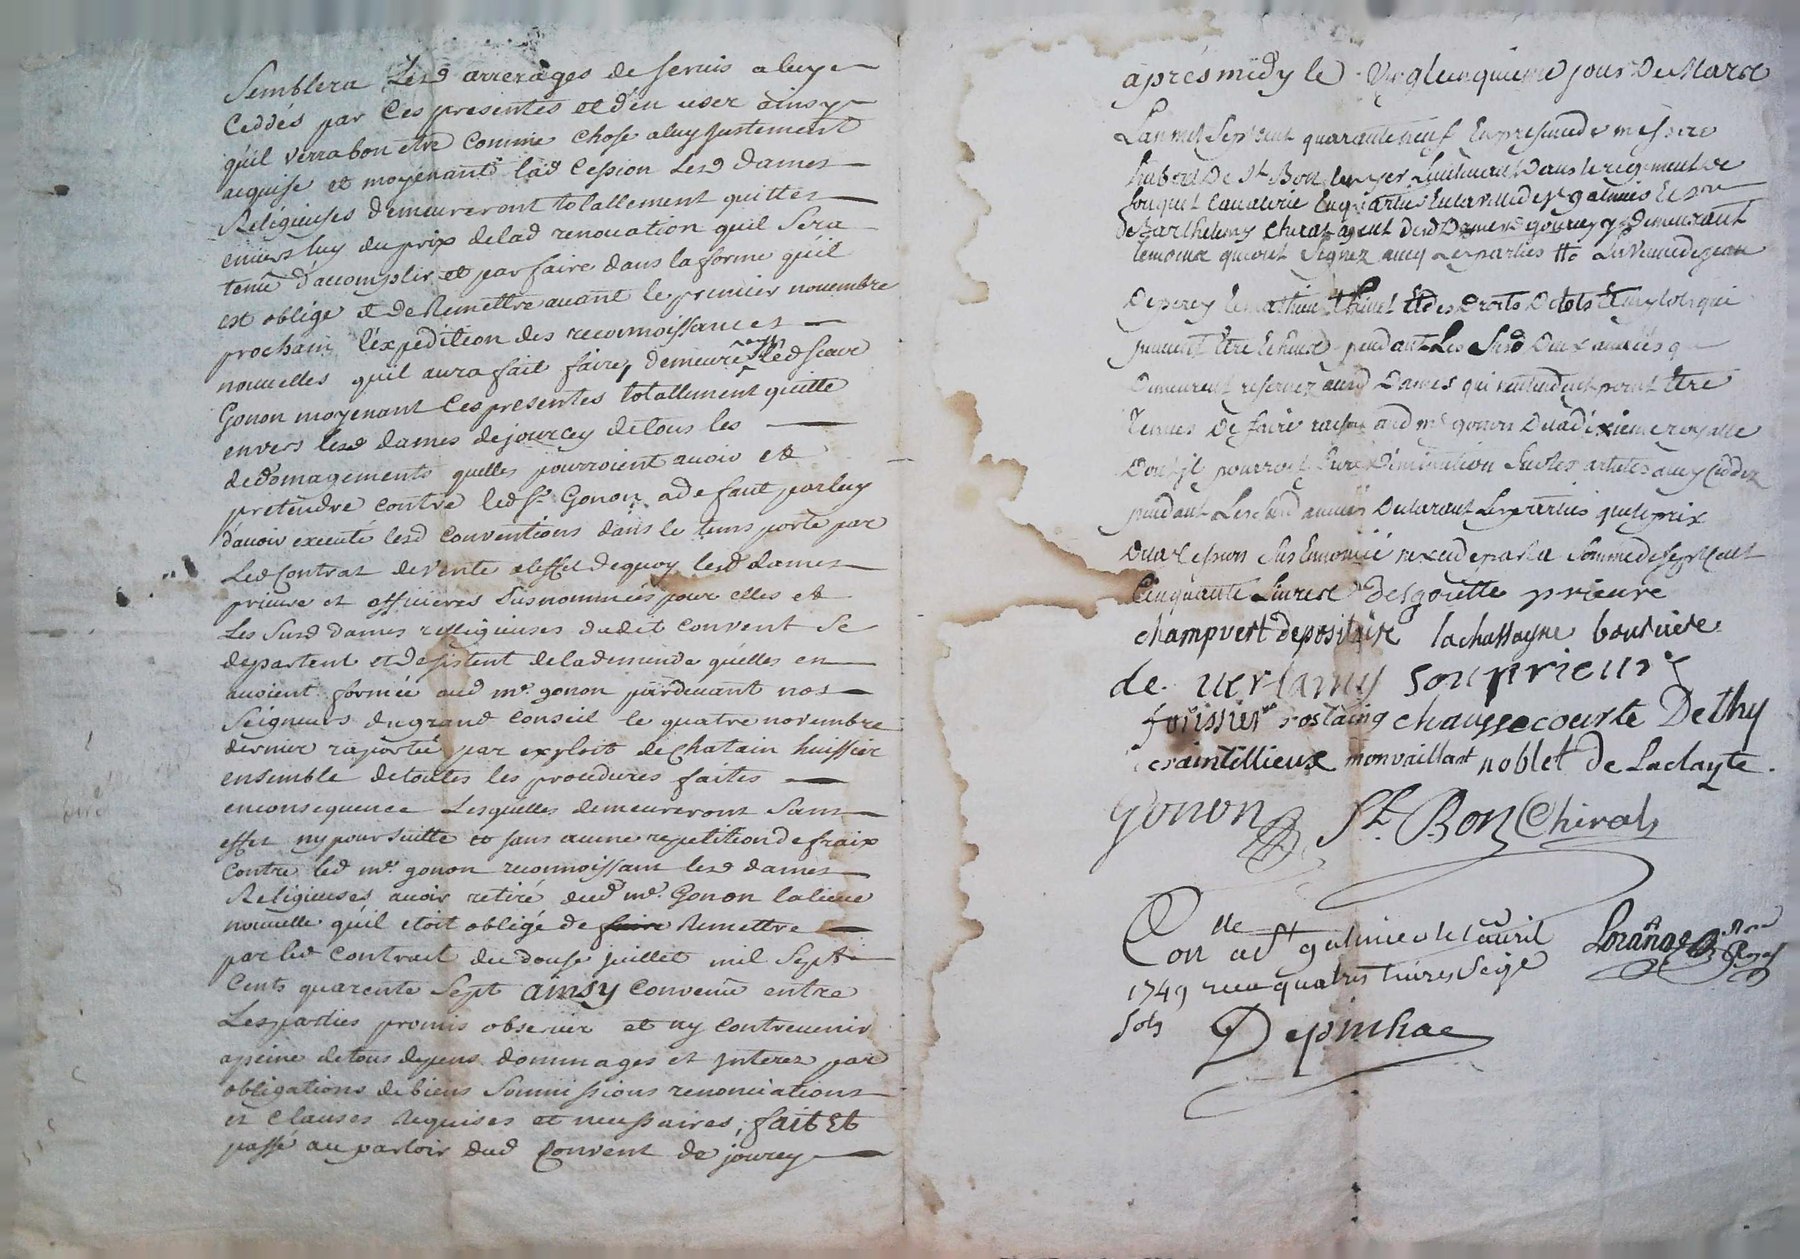 Semblera Lesd arrerages de servis a luy
Ceddés par Ces presentes et d'en user ainsy
qu'il verra bon etre Comme chose a luy justement
acquise et moyenant lad Cession Lesd dames
Religieuses demeureront totallement quittes
envers luy du prix de lad renouation quil sera
tenû d'accomplir et parfaire dans la forme qu'il
est obligé et de Remettre auant le premier nouembre
prochain l'expedition des reconnoissances
nouuelles quil aura fait faire, demeure led sieur
Gonon moyenant Ces presentes totallement quitte
envers lesd dames de jourcey de tous les
dedomagements quelles pourroient auoir et
pretendre contre led Sr Gonon a defaut par luy
d'auoir executé lesd conventions dans le tems porté par
Led Contrat de vente a l'effet de quoy lesd dames
prieure et officieres susnommées pour elles et
Les susd dames religieuses dudit convent se
departent et desistent de la demande qu'elles en
auoient formée aud mr gonon pardeuant nos
Seigneurs du grand Conseil le quatre novembre
dernier raporté par exploit de Chatain huissier
ensemble de toutes les procedures faites
en consequence Lesquelles demeureront sans
effet ny poursuitte et sans aucune repetition de fraix
Contre led mr gonon reconnoissant lesd dames
Religieuses auoir retiré dud mr Gonon la lieue
nouuelle qu'il etoit obligé de faire Remettre
par led Contrat du douse juillet mil sept
Cents quarente sept ainsy Convenû entre
Les parties promis obseruer et ny contreuenir
a peine de tous depens dommages et jnterez par
obligations de biens Soumissions renonciations
et Clauses Requises et necessaires, fait Et
passé au parloir dud Convent de jourcey
après midy le vingt cinquieme jour De Mars
L'an mil sept cent quarante neuf En presence de messire
hubert De St Bon Lieutenant Dans le regiment de
fouquet Caualerie En quartier En la ville de St galmier Et de
Sr Barthelemy Chirat agent desd Dames de jourcey y Demeurant
temoins qui ont signez aucq Les parties
Les Susd Deux années
Demeurent reservez ausd Dames qui n'entendent point Etre
Tenues De faire raison aud mr gonon Du dixieme royalle
Dont il pourroit Diminution Sur les articles a luy Ceddez
pendant Lesd années Declarant Les parties que le prix
De la Cession Sus Enoncée n'excede pas la Somme de sept Cent
Cinquante Liures Desgoutte prieure
champvert depositaire lachassagne boursiere
de souprieure
forissier rostaing chaussecourte Dethy
Craintillieux monvaillant noblet De Laclayte.
Gonon St Bon Chirat
Con lle a St galmier le auril
1749 receu quatre liures Seize
Sols Depinhac